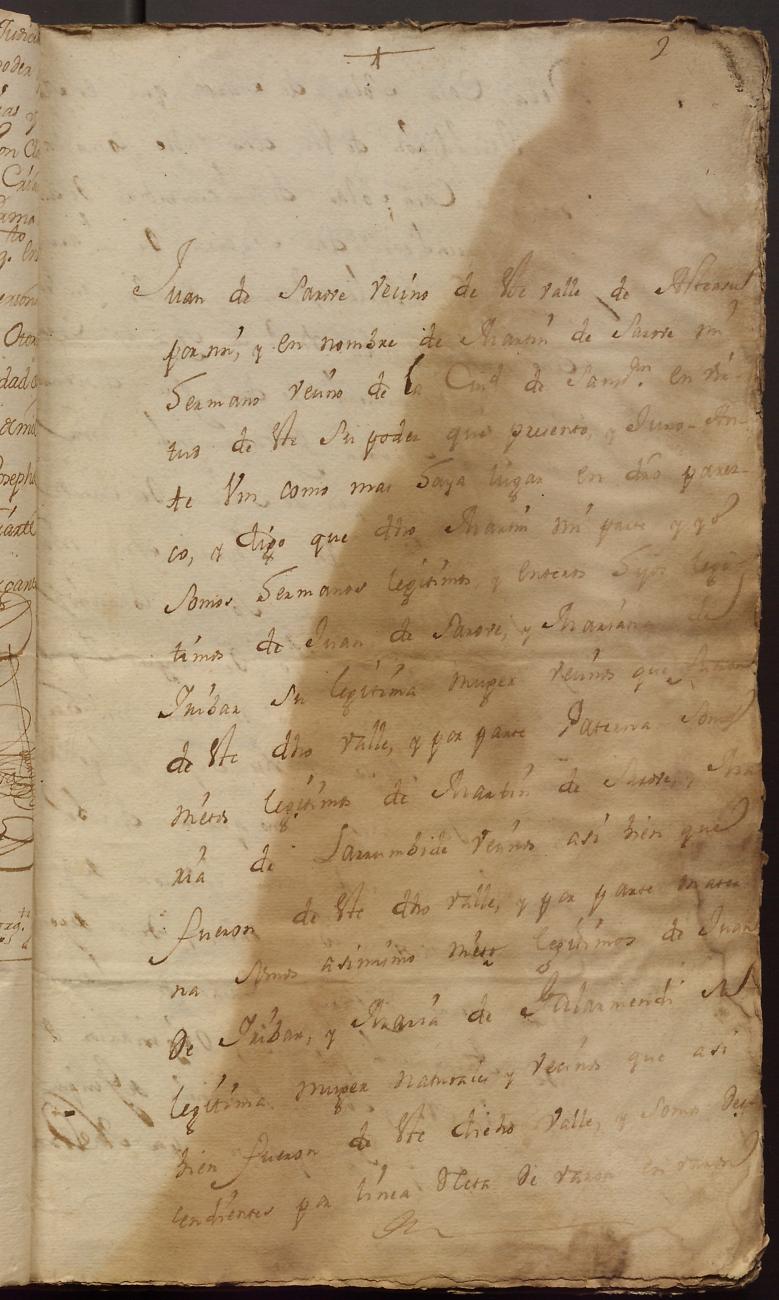 2
Juan de Sarove vecino de este valle de
por mi, y en nombre de Martin de Sarove mi
hermano vecino de la Ciud de en vir-
tud de este su poder que presento, y Juro An-
te Vm como mas haya lugar en dro parez-
co, y digo que dho Martin mi parte y yo
somos hermanos legitimos, y enteros hijos legi-
timos de Juan de Sarove, y Mariana de
Iribar su legitima muger vecinos que fueron
de este dho valle, y por parte Paterna somos
nietos legitimos de Martin de Sarove, y Ma-
ria de Larrumbide vecinos asi bien que
fueron de este dho valle, y por parte mater-
na somos asimismo nietos legitimos de Juan
De Iribar, y Maria de Galarmendi su
legitima muger naturales y vecinos que asi
bien fueron de este dicho valle, y somos Des-
cendientes por linea recta de varon en varon